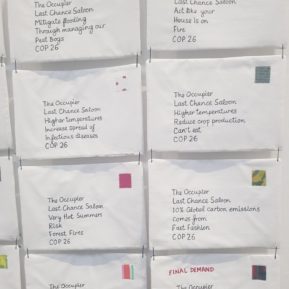 The Occupier
Last Chance Saloon
Mitigate flooding
Through managing our
Peat Bogs
COP 26
Last Chance Saloon
Act like your
House is on
Fire
COP 26
The Occupier
Last Chance Saloon
Higher temperatures
Increase spread of
Infectious diseases
COP 26
The Occupier
Last Chance Saloon
Higher temperatures
Reduce crop production
Can't eat
COP 26
The Occupier
Last Chance Saloon
Very Hot Summers
Risk
Forest Fires
COP 26
The Occupier
Last Chance Saloon
10% Global carbon emissions
comes from
Fast Fashion
COP 26
The Occupier
Last Chance Saloon
FINAL DEMAND
The Occupier